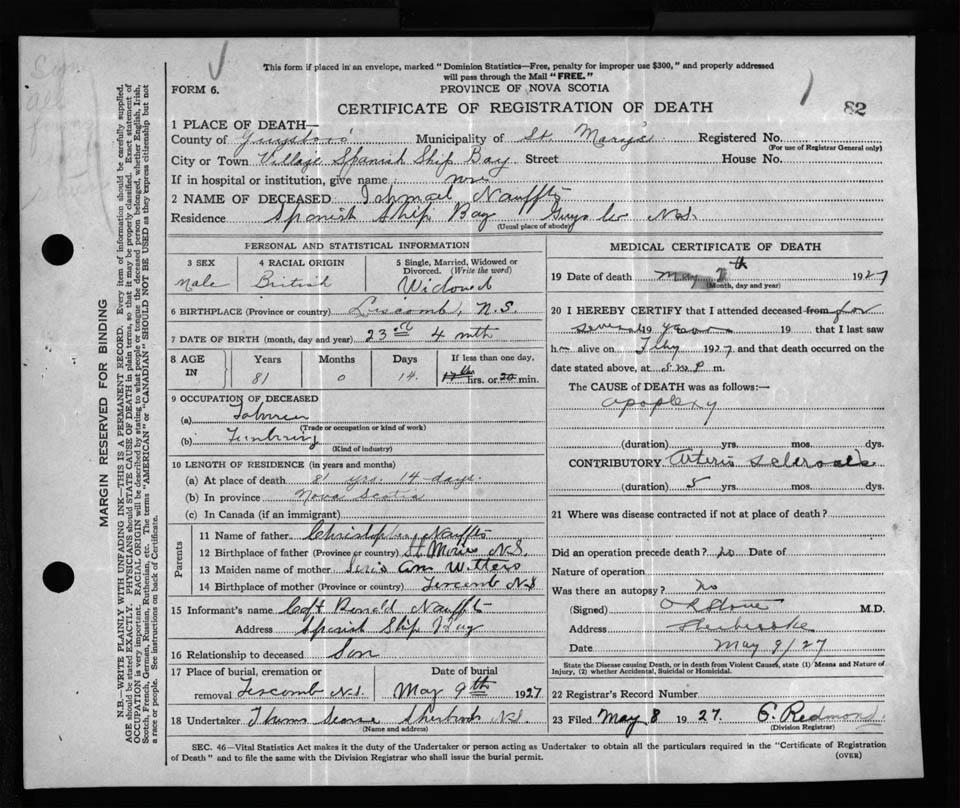 This form if placed in an envelope, marked "Dominion Statistics—Free, penalty for improper use $300," and properly addressed
will pass through the Mail "FREE."
FORM 6.
PROVINCE OF NOVA SCOTIA
1
82
CERTIFICATE OF REGISTRATION OF DEATH
1 PLACE OF DEATH—
County of Guysboro Municipality of St. Mary's Registered No.
(For use of Registrar General only)
City or Town Village Spanish Ship Bay Street House No.
If in hospital or institution, give name
2 NAME OF DECEASED Ishmael Nauffts
Residence Spanish Ship Bay Guys Co N.S.
(Usual place of abode)
PERSONAL AND STATISTICAL INFORMATION
3 SEX 4 RACIAL ORIGIN 5 Single, Married, Widowed or Divorced. (Write the word)
Male British Widowed
6 BIRTHPLACE (Province or country) Liscomb, N.S.
7 DATE OF BIRTH (month, day and year) 23 4 mth
8 AGE IN Years Months Days If less than one day,
81 0 14 hrs. or 20 min.
9 OCCUPATION OF DECEASED
(a)
(Trade or occupation or kind of work)
(b)
(Kind of industry)
10 LENGTH OF RESIDENCE (in years and months)
(a) At place of death 81 yrs. 14 days.
(b) In province Nova Scotia
(c) In Canada (if an immigrant)
Parents
11 Name of father Christopher Nauffts
12 Birthplace of father (Province or country) N.S.
13 Maiden name of mother Ann
14 Birthplace of mother (Province or country) N.S
15 Informant's name Capt Nauffts
Address Spanish Ship Bay
16 Relationship to deceased Son
17 Place of burial, cremation or removal N.S. Date of burial May 9th 1927
18 Undertaker N.S.
(Name and address)
MEDICAL CERTIFICATE OF DEATH
19 Date of death May 7th 1927
(Month, day and year)
20 I HEREBY CERTIFY that I attended deceased from for
several 19 years 19 that I last saw
h alive on 1927 and that death occurred on the
date stated above, at P m.
The CAUSE OF DEATH was as follows:—
apoplexy
(duration) yrs. mos. dys.
CONTRIBUTORY Arterio sclerosis
(duration) 5 yrs. mos. dys.
21 Where was disease contracted if not at place of death?
Did an operation precede death? no Date of
Nature of operation
Was there an autopsy? no
(Signed) M.D.
Address Sherbrooke
Date May 9/27
State the Disease causing Death, or in death from Violent Causes, state (1) Means and Nature of
Injury, (2) whether Accidental, Suicidal or Homicidal.
22 Registrar's Record Number
23 Filed May 8 1927. Redmond
(Division Registrar)
SEC. 46—Vital Statistics Act makes it the duty of the Undertaker or person acting as Undertaker to obtain all the particulars required in the "Certificate of Registration
of Death" and to file the same with the Division Registrar who shall issue the burial permit.
(OVER)
MARGIN RESERVED FOR BINDING
N.B.—WRITE PLAINLY WITH UNFADING INK—THIS IS A PERMANENT RECORD. Every item of information should be carefully supplied.
AGE should be stated EXACTLY. PHYSICIANS should STATE CAUSE OF DEATH in plain terms, so that it may be properly classified. Exact statement of
OCCUPATION is very important. RACIAL ORIGIN will be described by stating to what people or tongue the deceased person belonged, whether English, Irish,
Scotch, French, German, Russian, Ruthenian, etc. The terms "AMERICAN" or "CANADIAN" SHOULD NOT BE USED as they express citizenship but not
a race or people. See instructions on back of Certificate.